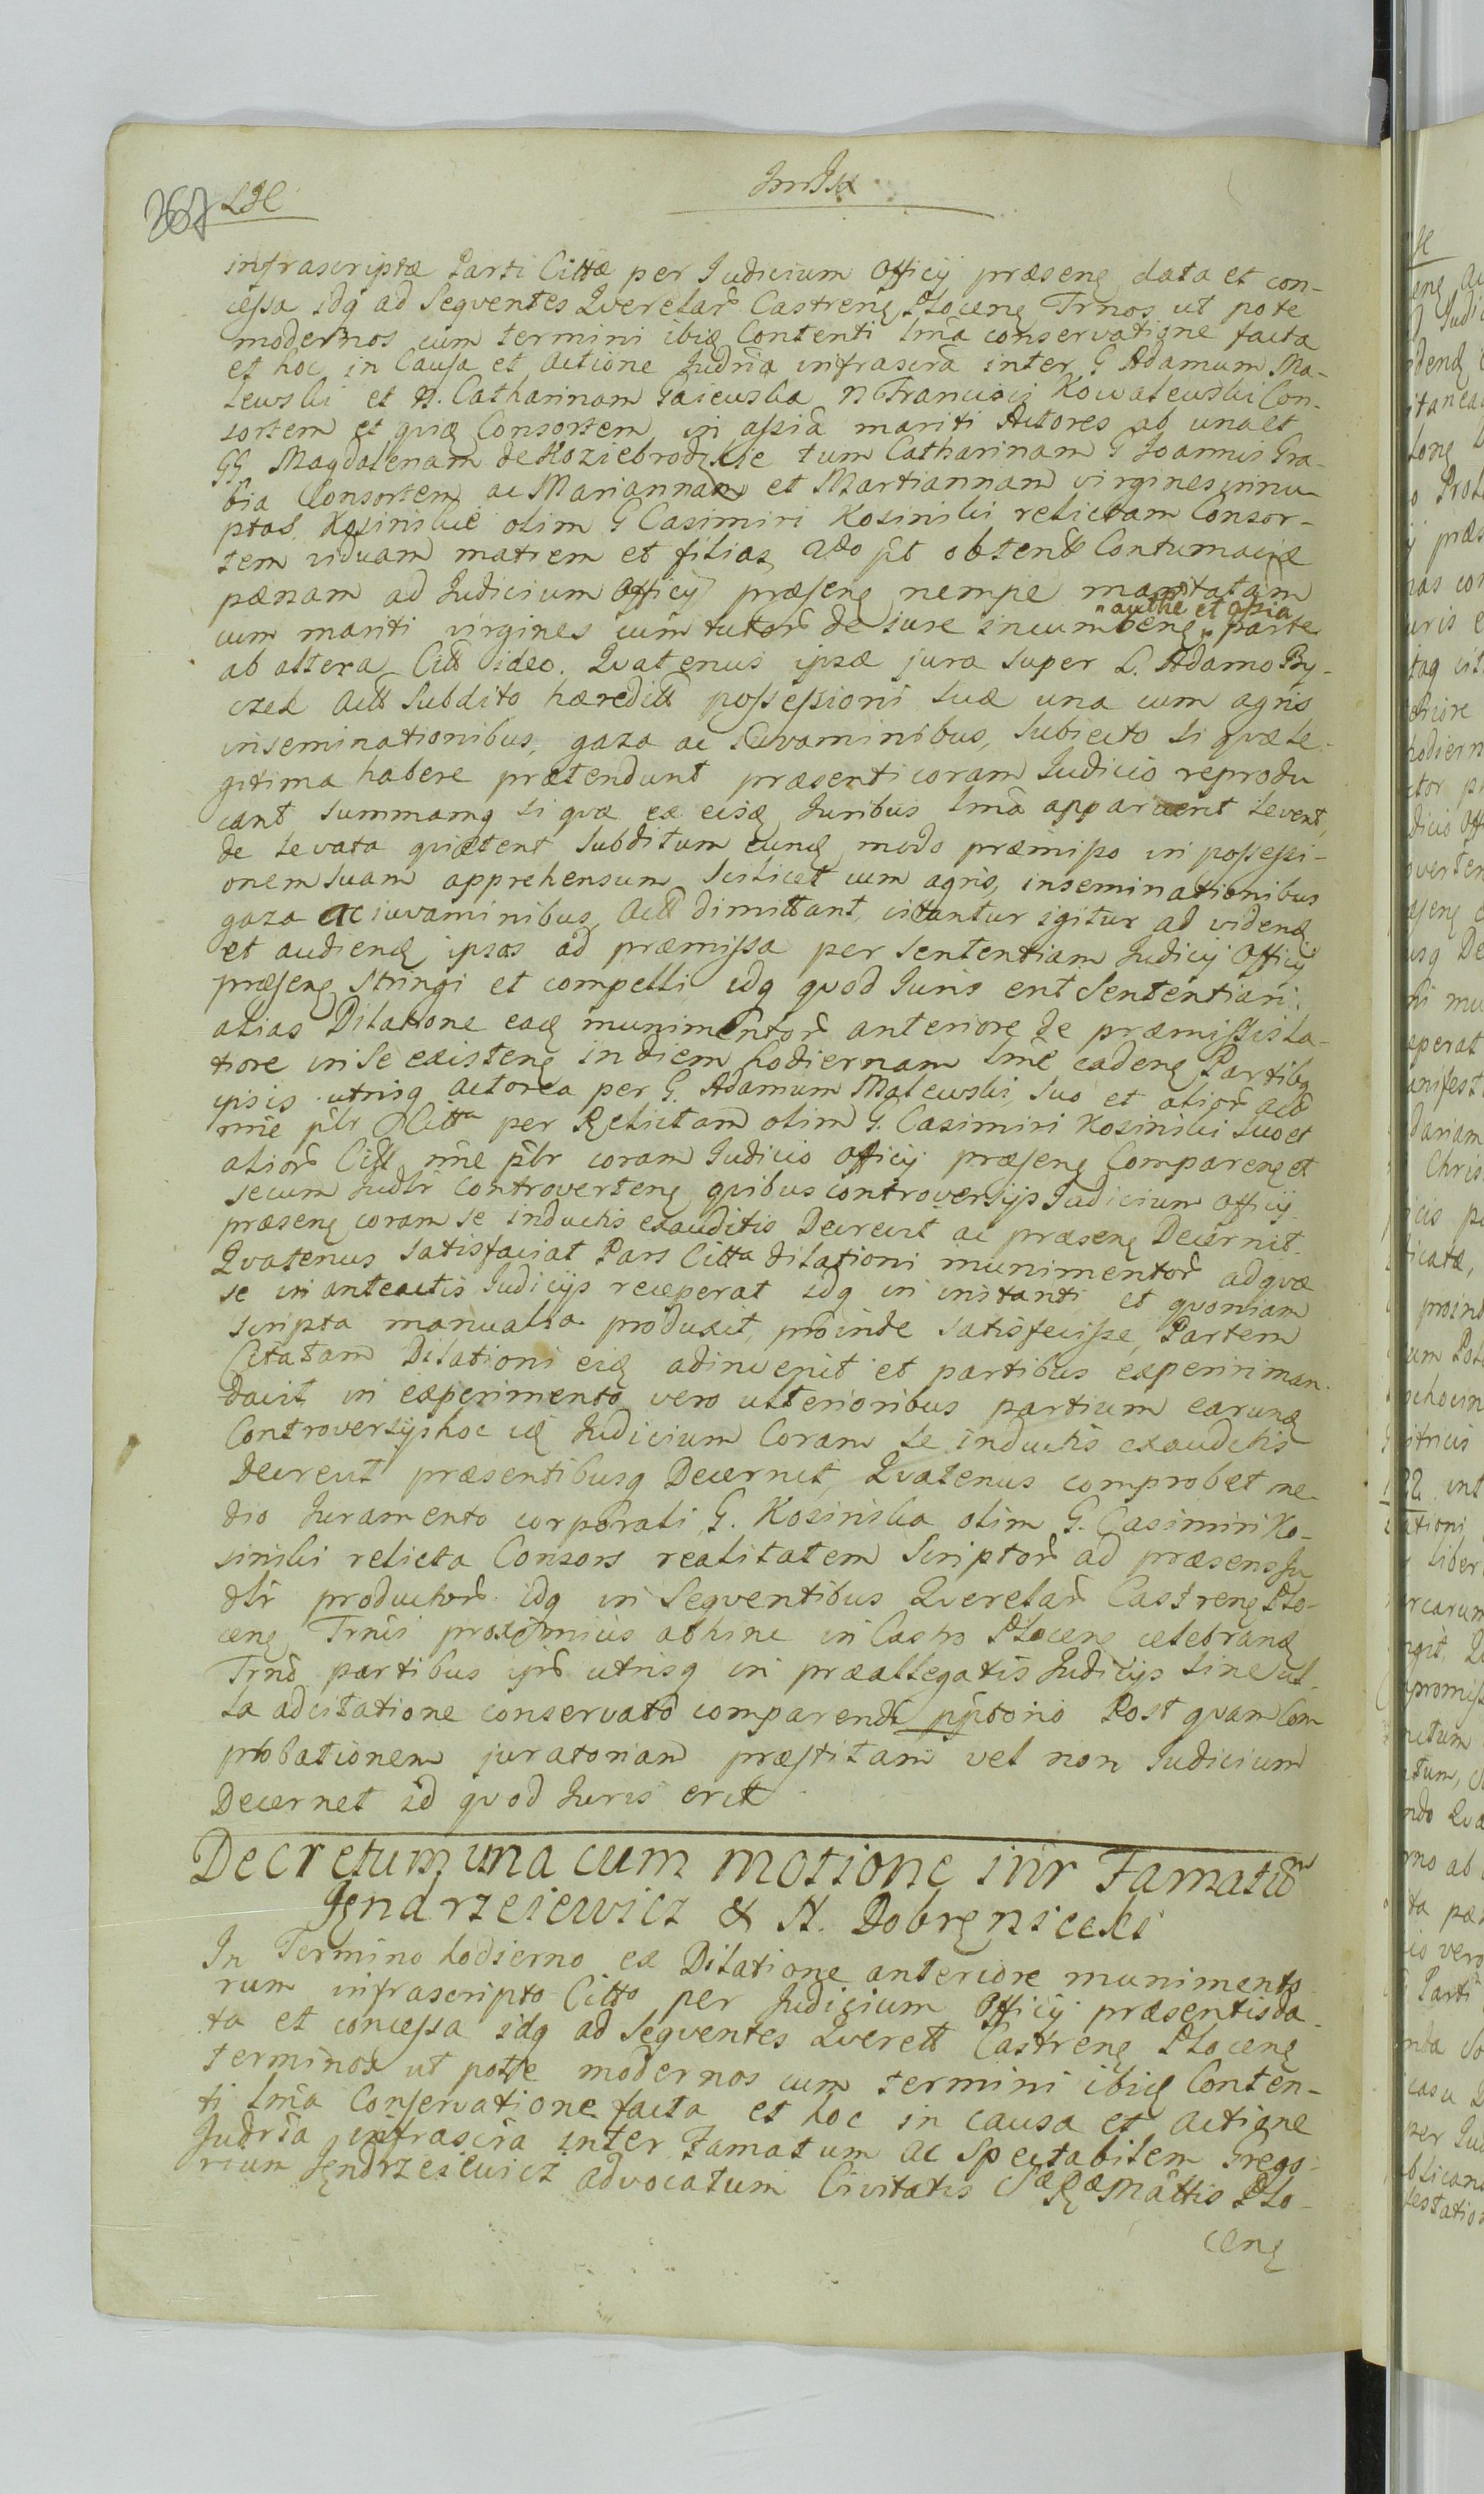 267
infrascriptæ Parti Cittæ per Judicium Officij præsenꝫ data et con-
cessa idq ad Seqventes Qverelar Castrenꝫ Plocenꝫ Trnos ut pote
modernos cum termini ibiꝫ Contenti lma conservatione facta
et hoc in Causa et Actione Judria infrascra inter G Adamum Ma-
lewski et N. Catharinam Gaiewska N Francisci Kowalewski Con-
sortem et qvia Consortem in assia mariti Actores ab una et
GG Magdalenam de Koziebrodzkie tum Catharinam G Joannis Gra-
bia Consortem ac Mariannam et Martiannam virgines innu
ptas Kosinskie olim G Casimiri Kosinski relictam Consor-
tem viduam matrem et filias obtent Contumaciæ
pænam ad Judicium Officij præsenꝫ nempe maritatam
cum mariti virgines cum tutor de jure incumbenꝫ parte
authe et assia
ab altera Citt ideo. Qvatenus ipsæ jura super L. Adamo By-
czek Actt Subdito hæreditt possessioni suæ una cum agris
inseminationibus, gaza ac iuvaminibus, subiecto si qvæ le-
gitima habere prætendunt præsenti coram Judicio reprodu
cant summamq si qvæ ex eisꝫ Juribus lma apparuerit levent,
de levata qvietent subditum eunꝫ modo præmisso in possessi-
onem suam apprehensum scilicet cum agris, inseminationibus
gaza ac iuvaminibus, Actt dimittant, citantur igitur ad videnꝫ
et audienꝫ ipsos ad præmissa per Sententiam Judicij Officij
præsenꝫ stringi et compelli idq qvod Juris erit Sententiari.
alias Dilatione eaꝫ munimentor anteriore de præmissis la-
tiore in se existenꝫ in diem hodiernam lme cadenꝫ Partibq
ipsis utrisq Actorea per G. Adamum Malewski, suo et alior Actt
nne plr Citta per Relictam olim G. Casimiri Kosinski suo et
alior Citt nne plr coram Judicio Officij præsenꝫ Comparenꝫ et
secum Judlr controvertenꝫ qvibus controversijs Judicium Officij
præsenꝫ coram se inductis exauditis Decrevit ac præsenꝫ Decernit.
Qvatenus satisfaciat Pars Citta dilationi munimentor ad qvæ
se in anteactis Judicijs receperat idq in instanti et qvoniam
scripta manualia produxit, proinde satisfecisse, Partem
Citatam Dilationi eiꝫ adinvenit et partibus experiri man-
davit in experimento vero ulterioribus partium earunꝫ
Controversijs hoc iꝫ Judicium Coram se inductis exauditis
Decrevit præsentibusq Decernit, Qvatenus comprobet me-
dio Juramento corporali G. Kosinska olim G. Casimiri Ko-
sinski relicta Consors realitatem Scriptor ad præsens Ju
dlr productor idq in Seqventibus Qverelar Castrenꝫ Plo-
cenꝫ Trnis proximius abhinc in Castro Plocenꝫ celebranꝫ
Trno partibus ipis utrisq in præallegatis Judicijs sine ul-
la adcitatione conservato comparendi pptorio Post qvam Com
probationem juratoriam præstitam vel non Judicium
Decernet id qvod Juris erit
Decretum una cum motione intr Famatum
Jędrzeiewicz & N. Dobreniecki
In Termino hodierno ex Dilatione anteriore munimento
rum infrascripto Citto per Judicium Officij præsentis da-
ta et concessa idq ad Seqventes Qverell Castrenꝫ Plocenꝫ
terminos ut pote modernos cum termini ibiꝫ Conten-
ti lma Conservatione facta et hoc in causa et actione
Judria infrascra inter Famatum ac Spectabilem Grego-
rium Jendrzeiewicz advocatum Civitatis Sæ Ræ Mattis Plo-
cenꝫ